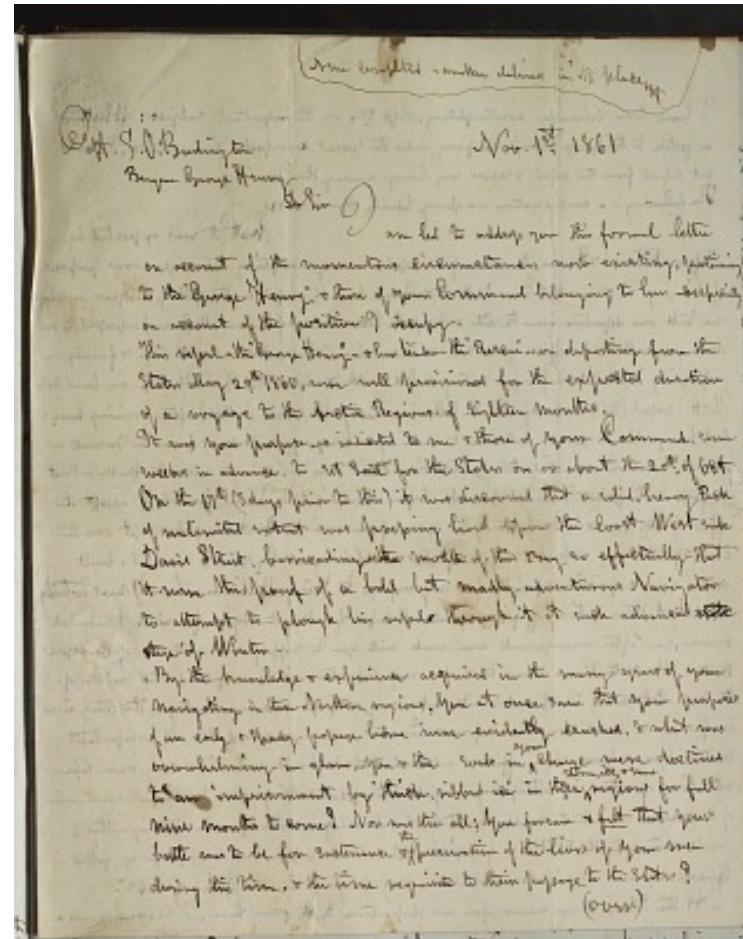 Nov. 1st 1861
Capt. S. O. Budington
Barque George Henry
Dr Sir
I am led to address you this formal letter
on account of the momentous circumstances now existing, pertaining
to the "George Henry" & those of your Command belonging to her especially
on account of the position I occupy.
This vessel - the "George Henry" - & her tender the Rescue - on departing from the
States May 29th 1860, were well provisioned for the expected duration
of a voyage to the Arctic Regions of Eighteen months.
It was your purpose, as indicated to me & those of your Command, some
weeks in advance, to set sail for the States on or about the 20th of Oct.
On the 17th (3 days prior to this) it was discovered that a solid, heavy Pack
of unlimited extent was hard upon the Coast West side
Davis Strait, barricading the mouth of this Bay so effectually that
it were the proof of a bold but madly adventurous Navigator
to attempt to plough his vessel through it at such advanced
stage of Winter.
By the knowledge & experience acquired in the many years of your
navigating in the Northern regions, you at once saw that your purpose
of an early & speedy passage home were evidently crushed, & what was
overwhelming in gloom, you & the souls in your charge were destined
to an imprisonment by thick, ribbed ice in these regions for full
nine months to come! Nor was this all; you foresaw & felt that your
battle was to be for sustenance & the preservation of the lives of your men
during this time, & the time requisite to their passage to the States!
(over)